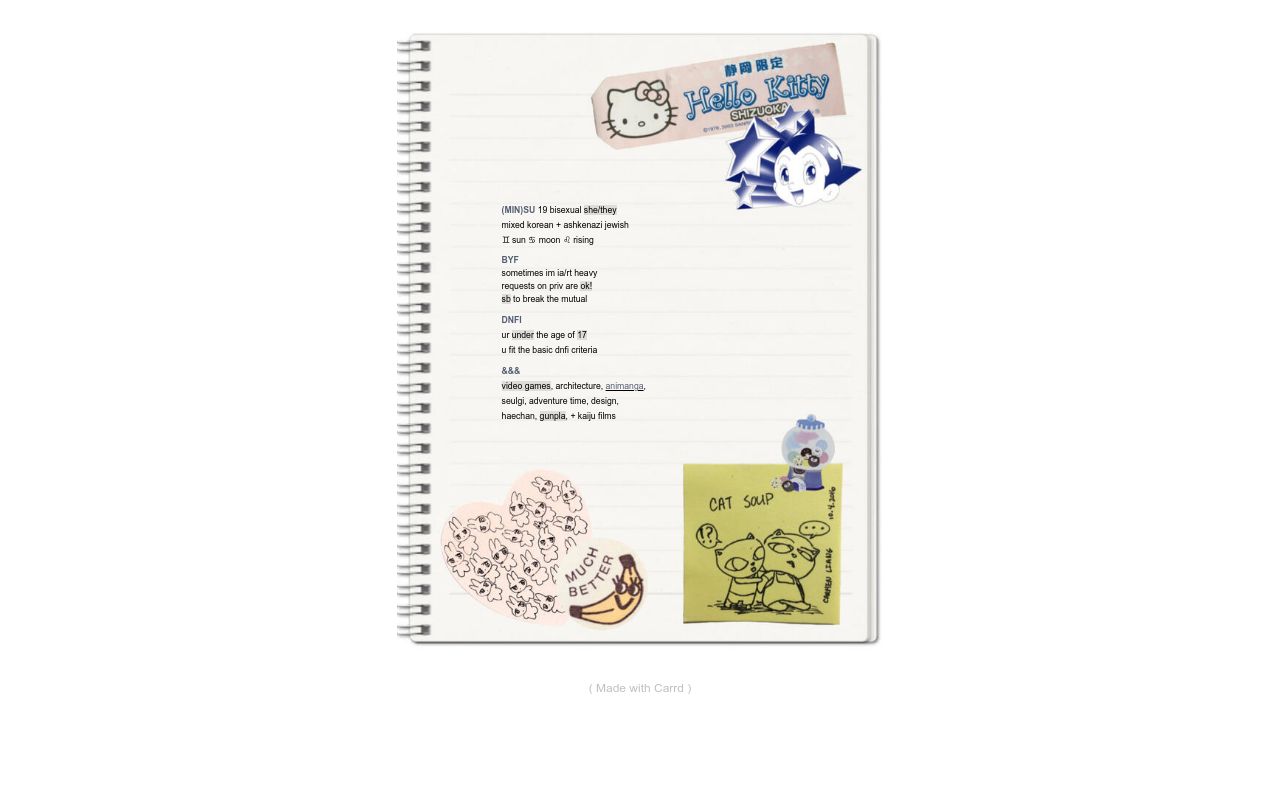 静岡限定
Hello Kitty
SHIZUOKA
(MIN)SU 19 bisexual she/they
mixed korean + ashkenazi jewish
♊ sun ♋ moon ♌ rising
BYF
sometimes im ia/rt heavy
requests on priv are ok!
sb to break the mutual
DNFI
ur under the age of 17
u fit the basic dnfi criteria
&&&
video games, architecture, animanga,
seulgi, adventure time, design,
haechan, gunpla, + kaiju films
MUCH
BETTER
CAT SOUP
10.4.2016
!?
...
CARMEN LIANG
( Made with Carrd )